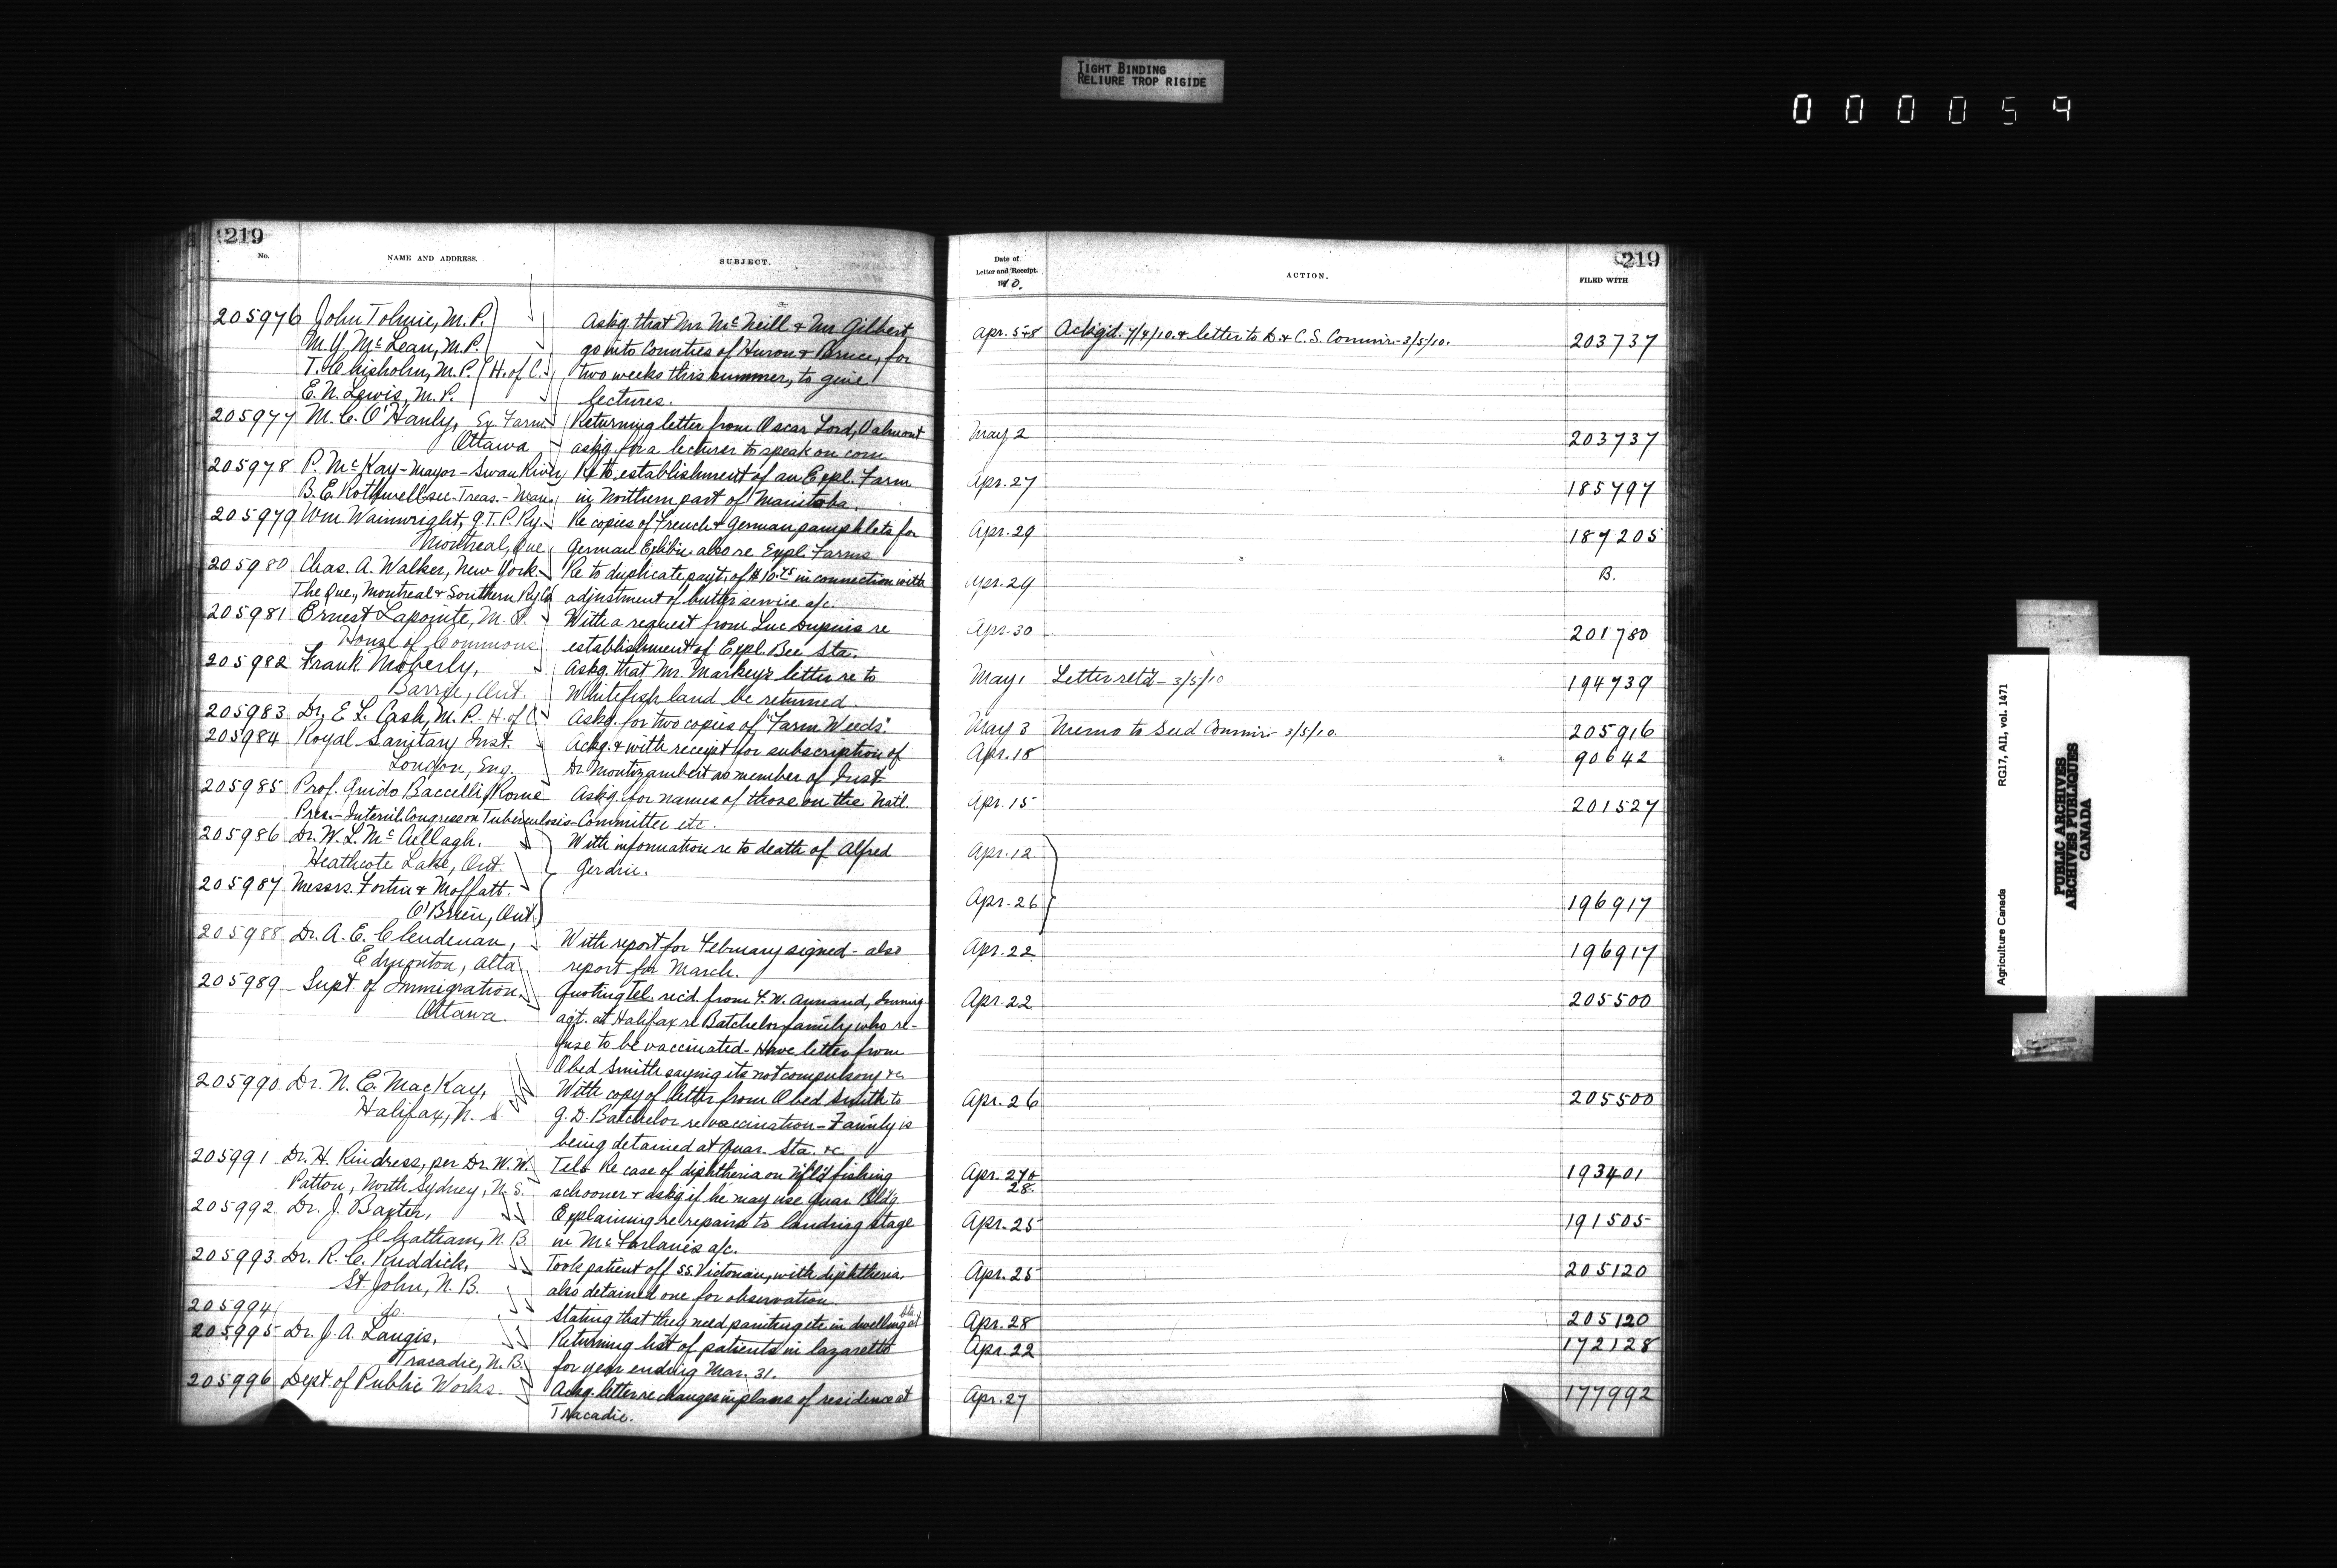 TIGHT BINDING
RELIURE TROP RIGIDE
000059
219
No.
NAME AND ADDRESS.
SUBJECT.
205976 John Tolmie, M.P.
M. Y. McLean, M.P.
T. Chisholm, M.P. H. of C.
E. N. Lewis, M.P.
Askg. that Mr. McNeill & Mr Gilbert
go into Counties of Huron & Bruce, for
two weeks this summer, to give
lectures.
205977 M. C. O'Hanly, Ex. Farm
Ottawa
Returning letter from Oscar Lord, Valmont
askg. for a lecturer to speak on corn
205978 P. McKay - Mayor - Swan River
B. E. Rothwell sec. Treas. - Man.
Re to establishment of an Expl. Farm
in Northern part of Manitoba.
205979 Wm. Wainwright, G.T.P. Ry.
Montreal, Que.
Re copies of French & German pamphlets for
German Exhibn. also re Expl. Farms
205980 Chas. A. Walker, New York.
The Que., Montreal & Southern Ry Co
Re to duplicate payt. of $10.75 in connection with
adjustment of butter service a/c.
205981 Ernest Lapointe, M. P.
House of Commons
With a request from Luc Dupuis re
establishment of Expl. Bee Sta.
205982 Frank Moberly,
Barrie, Ont.
Askg. that Mr. Markey's letter re to
Whitefish land be returned.
205983 Dr. E. L. Cash, M. P. H. of C
Askg. for two copies of "Farm Weeds".
205984 Royal Sanitary Inst.
London, Eng.
Ackg. & with receipt for subscription of
Dr Montizambert as member of Inst.
205985 Prof. Guido Baccelli, Rome
Pres. - Internl. Congress on Tuberculosis -
Askg. for names of those on the Natl.
Committee etc.
205986 Dr. W. L. McCullagh.
Heathcote Lake, Ont.
With information re to death of Alfred
205987 Messrs. Fortin & Moffatt.
O'Brien, Ont.
205988 Dr. A. E. Clendenan,
Edmonton, Alta.
With report for February signed - also
report for March.
205989 Supt. of Immigration.
Ottawa.
Quoting Tel. recd. from F. W. Annand, Immig.
agt. at Halifax re Batchelor family who re-
fuse to be vaccinated - Have letter from
Obed Smith saying its not compulsory &c
205990 Dr. N. E. MacKay,
Halifax, N. S
With copy of letter from Obed Smith to
G. D. Batchelor re vaccination - Family is
being detained at Quar. Sta. &c.
205991 Dr. H. Rindress, per Dr. W. W.
Patton, North Sydney, N. S.
Tels Re case of diphtheria on Nfld fishing
schooner & askg if he may use Quar. Bldg.
205992 Dr. J. Baxter,
Chatham, N. B.
Explaining re repairs to landing stage
in McFarlane's a/c.
205993 Dr. R. C. Ruddick,
St. John, N. B.
Took patient off SS. Victorian, with diphtheria.
also detained one for observation.
205994 do.
Stating that they need painting etc in dwelling at
205995 Dr. J. A. Langis,
Tracadie, N. B.
Returning list of patients in lazaretto
for year ending Mar. 31.
205996 Dept. of Public Works.
Ackg. letter re changes in plans of residence at
Tracadie.
219
Date of
Letter and Receipt.
1910.
ACTION.
FILED WITH
Apr. 5+8 Ackg'd. 7/4/10. & letter to D. & C. S. Commr. - 3/5/10. 203737
May 2 203737
Apr. 27 185797
Apr. 29 187205
Apr. 29 B.
Apr. 30 201780
May 1 Letter ret'd - 3/5/10 194739
May 3 Memo to Seed Commr. - 3/5/10. 205916
Apr. 18 90642
Apr. 15 201527
Apr. 12
Apr. 26 196917
Apr. 22 196917
Apr. 22 205500
Apr. 26 205500
Apr. 27 &
28. 193401
Apr. 25 191505
Apr. 25 205120
Apr. 28 205120
Apr. 22 172128
Apr. 27 177992
Agriculture Canada RG17, AII, vol. 1471
PUBLIC ARCHIVES
ARCHIVES PUBLIQUES
CANADA